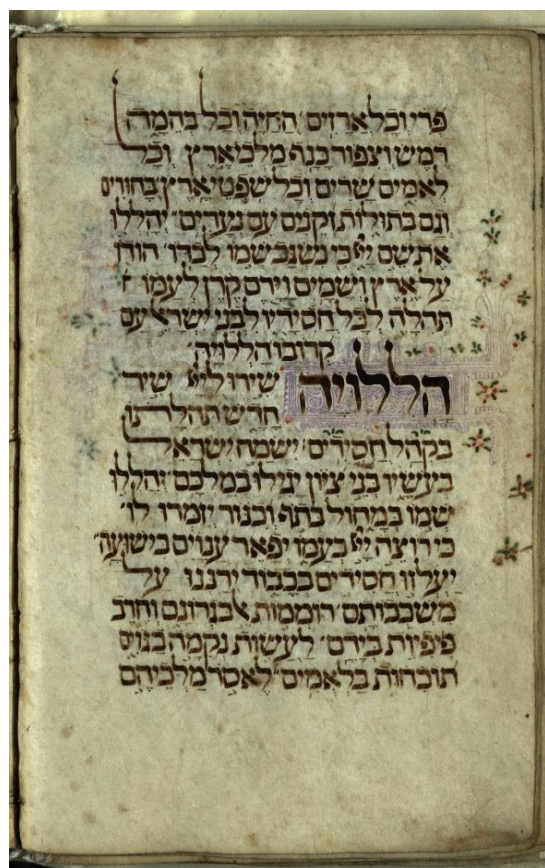 פרי וכל ארזים החיה וכל בהמה
רמש וצפור כנף מלכי ארץ וכל
לאמים שרים וכל שפטי ארץ בחורים
וגם בתולות זקנים עם נערים יהללו
את שם ייי כי נשגב שמו לבדו הודו
על ארץ ושמים וירם קרן לעמו
תהלה לכל חסידיו לבני ישראל עם
קרובו הללויה
הללויה שירו לייי שיר
חדש תהלתו
בקהל חסידים ישמח ישראל
בעשיו בני ציון יגילו במלכם יהללו
שמו במחול בתף וכנור יזמרו לו
כי רוצה ייי בעמו יפאר ענוים בישועה
יעלזו חסידים בכבוד ירננו על
משכבותם רוממות אל בגרונם וחרב
פיפיות בידם לעשות נקמה בגוים
תוכחות בלאמים לאסר מלכיהם